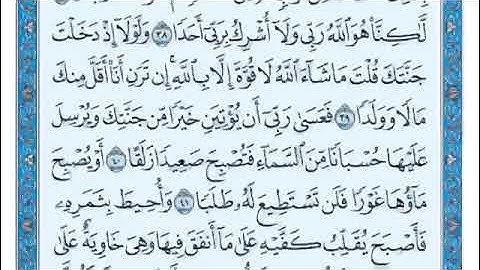 لَّٰكِنَّا۠ هُوَ ٱللَّهُ رَبِّى وَلَآ أُشْرِكُ بِرَبِّىٓ أَحَدًا ٣٨ وَلَوْلَآ إِذْ دَخَلْتَ
جَنَّتَكَ قُلْتَ مَا شَآءَ ٱللَّهُ لَا قُوَّةَ إِلَّا بِٱللَّهِ ۚ إِن تَرَنِ أَنَا۠ أَقَلَّ مِنكَ
مَالًا وَوَلَدًا ٣٩ فَعَسَىٰ رَبِّىٓ أَن يُؤْتِيَنِ خَيْرًا مِّن جَنَّتِكَ وَيُرْسِلَ
عَلَيْهَا حُسْبَانًا مِّنَ ٱلسَّمَآءِ فَتُصْبِحَ صَعِيدًا زَلَقًا ٤٠ أَوْ يُصْبِحَ
مَآؤُهَا غَوْرًا فَلَن تَسْتَطِيعَ لَهُۥ طَلَبًا ٤١ وَأُحِيطَ بِثَمَرِهِۦ
فَأَصْبَحَ يُقَلِّبُ كَفَّيْهِ عَلَىٰ مَآ أَنفَقَ فِيهَا وَهِىَ خَاوِيَةٌ عَلَىٰ